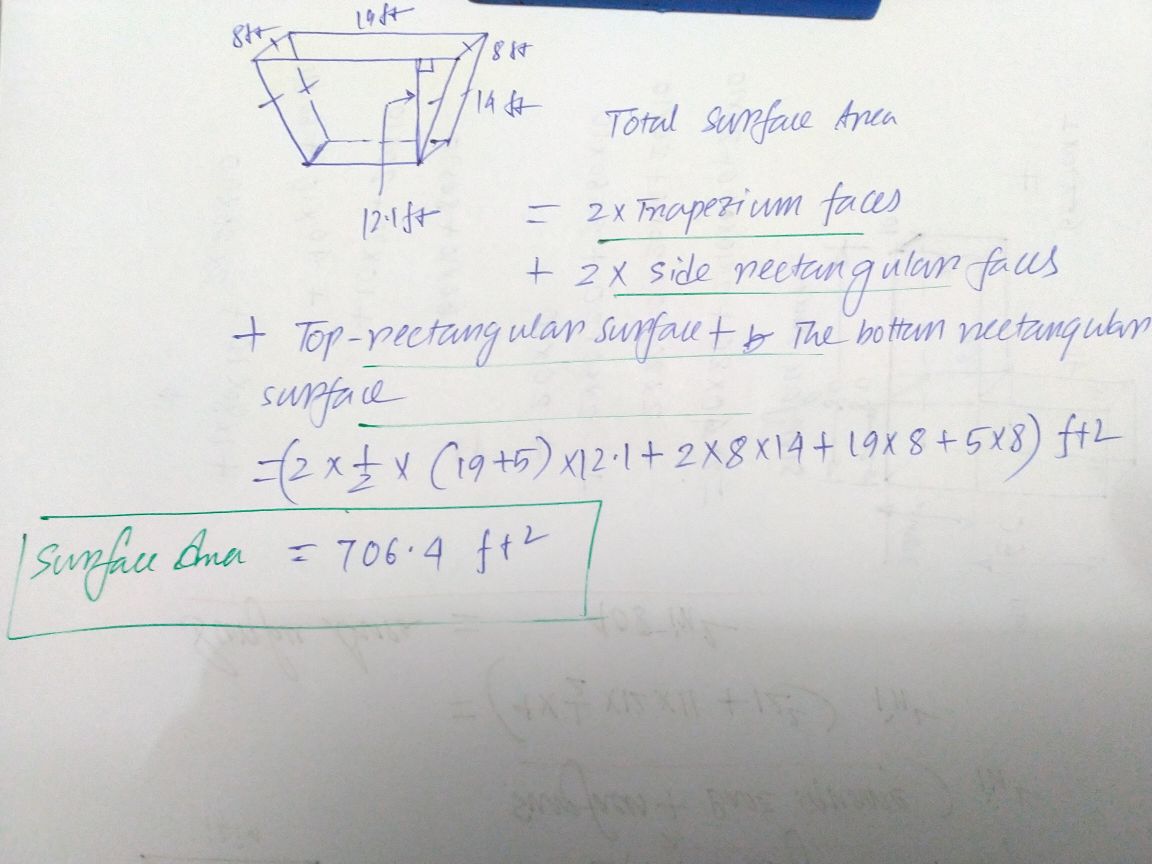 19 ft
8 ft
8 ft
14 ft
12.1 ft
Total Surface Area
= 2 x Trapezium faces
+ 2 x side rectangular faces
+ Top-rectangular surface + The bottom rectangular
surface
= (2 x 1/2 x (19+5) x 12.1 + 2 x 8 x 14 + 19 x 8 + 5 x 8) ft2
Surface Area = 706.4 ft²